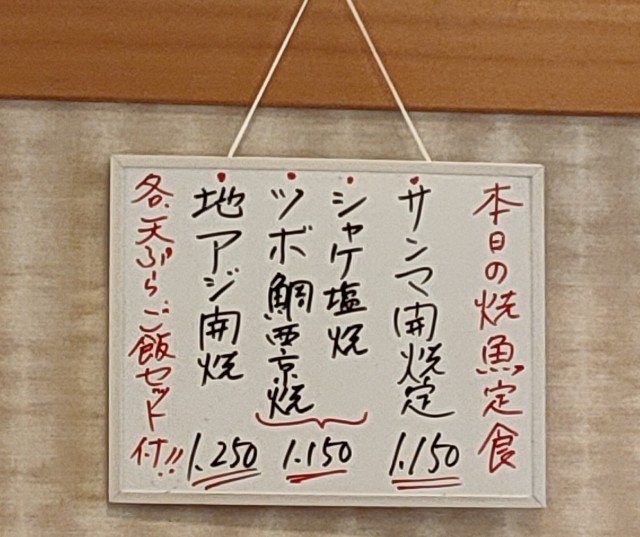 本日の焼魚定食
サンマ開焼定
1.150
シャケ塩焼
ツボ鯛西京焼
1.150
地アジ開焼
1.250
各天ぷらご飯セット付!!